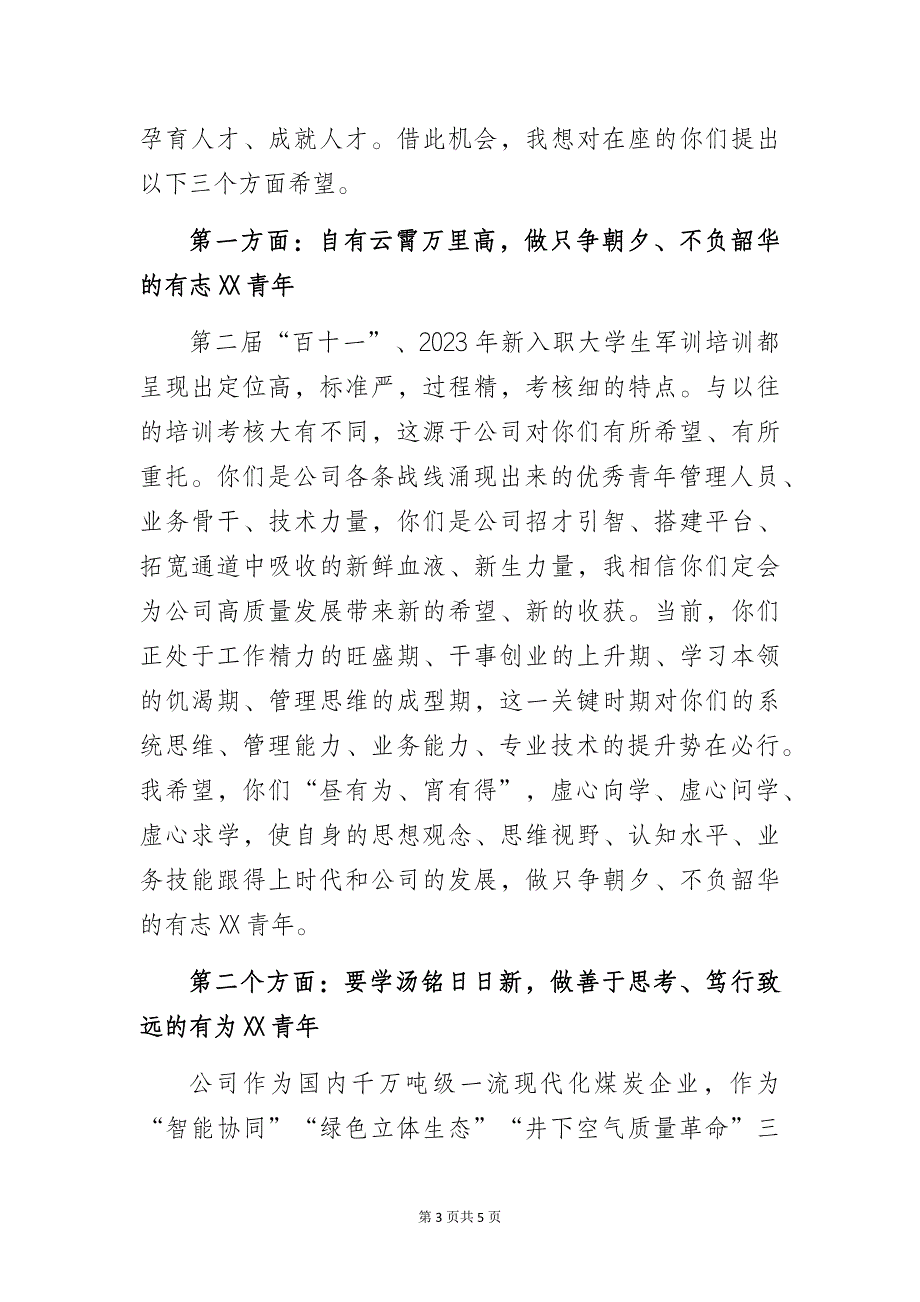 孕育人才、成就人才。借此机会，我想对在座的你们提出
以下三个方面希望。
第一方面：自有云霄万里高，做只争朝夕、不负韶华
的有志 XX 青年
第二届“百十一”、2023 年新入职大学生军训培训都
呈现出定位高，标准严，过程精，考核细的特点。与以往
的培训考核大有不同，这源于公司对你们有所希望、有所
重托。你们是公司各条战线涌现出来的优秀青年管理人员、
业务骨干、技术力量，你们是公司招才引智、搭建平台、
拓宽通道中吸收的新鲜血液、新生力量，我相信你们定会
为公司高质量发展带来新的希望、新的收获。当前，你们
正处于工作精力的旺盛期、干事创业的上升期、学习本领
的饥渴期、管理思维的成型期，这一关键时期对你们的系
统思维、管理能力、业务能力、专业技术的提升势在必行。
我希望，你们“昼有为、宵有得”，虚心向学、虚心问学、
虚心求学，使自身的思想观念、思维视野、认知水平、业
务技能跟得上时代和公司的发展，做只争朝夕、不负韶华
的有志 XX 青年。
第二个方面：要学汤铭日日新，做善于思考、笃行致
远的有为 XX 青年
公司作为国内千万吨级一流现代化煤炭企业，作为
“智能协同”“绿色立体生态”“井下空气质量革命”三
第 3 页共 5 页